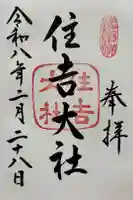 奉拝
住吉大社
住吉大社
令和八年二月二十八日